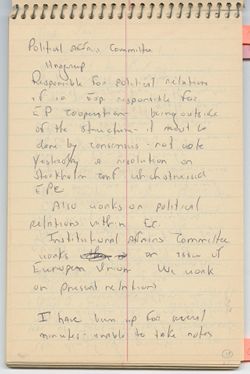 Political Affairs Committee
Responsible for political relations
if is top responsible for
EP cooperation - being outside
of the structure - it must be
done by consensus - not vote
Yesterday a resolution on
Stockholm conf which stressed
EPC
Also works on political
relations within EC.
Institutional Affairs Committee
works on issue of
European Union We work
on present relations
I have been up for several
minutes - unable to take notes